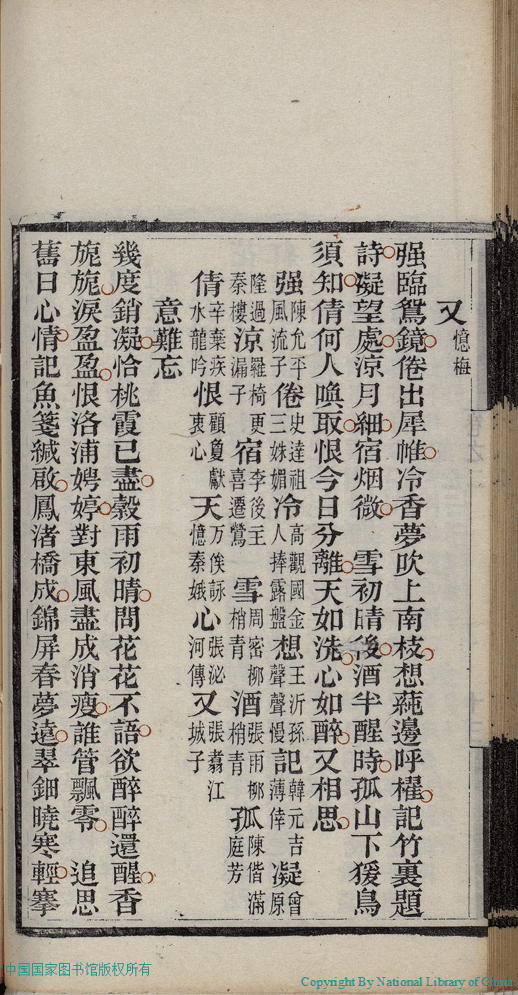 又憶梅
强臨鴛鏡倦出犀帷冷香夢吹上南枝想邊呼櫂記竹裏題
詩凝望處涼月細宿烟微　雪初晴後酒半醒時孤山下猨鳥
須知倩何人喚取恨今日分離天如洗心如醉又相思
强陳允平風流子倦史達祖三姝媚冷高觀國金人捧露盤想王沂孫聲聲慢記韓元吉薄倖凝曾原
隆過秦樓涼羅椅更漏子宿李後主喜遷鶯雪周密柳梢青酒張雨柳梢青孤陳偕滿庭芳
倩辛棄疾水龍吟恨顧夐獻衷心天万俟詠憶秦娥心張泌河傳又張翥江城子
意難忘
幾度銷凝恰桃霞已盡穀雨初晴問花花不語欲醉醉還醒香
旎旎淚盈盈恨洛浦娉婷對東風盡成消瘦誰管飄零　追思
舊日心情記魚箋緘啟鳳渚橋成錦屏春夢遠翠鈿曉寒輕搴
中国国家图书馆版权所有
Copyright By National Library of China